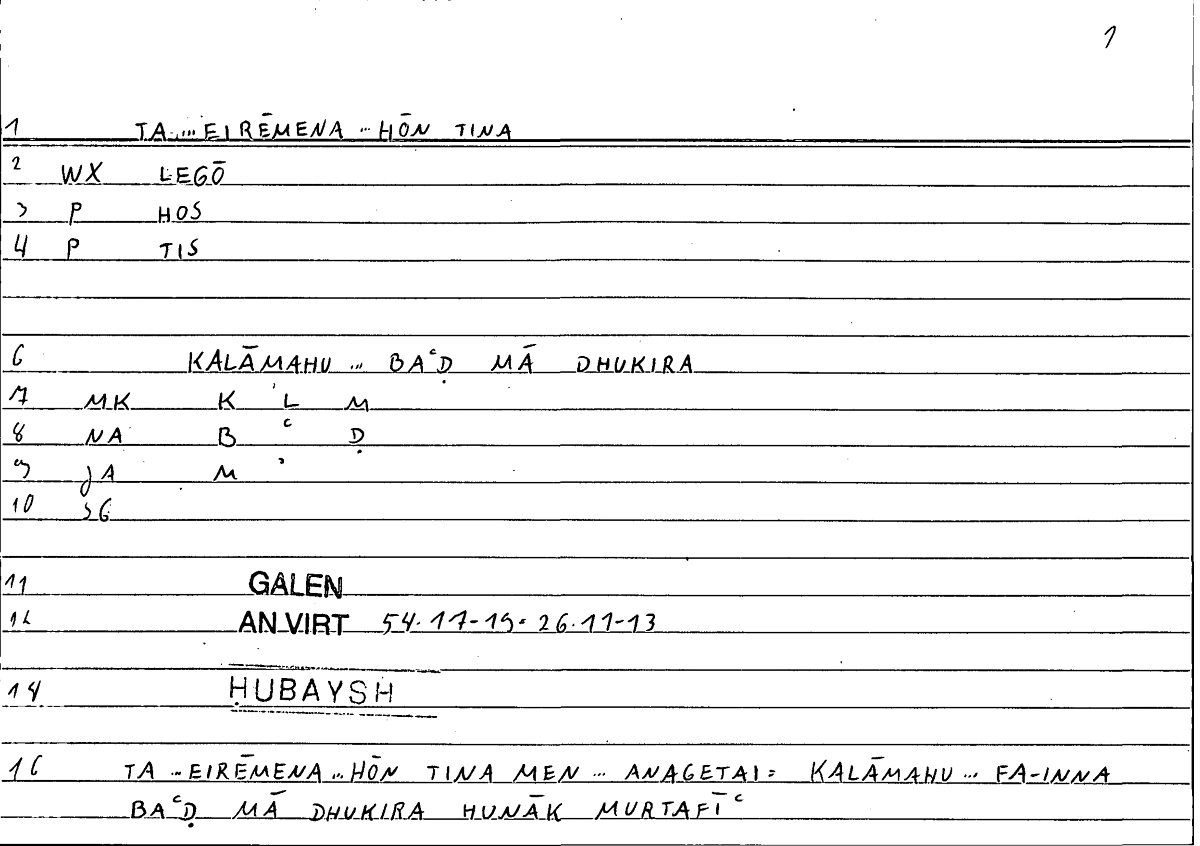 1
1 TA … EIRĒMENA … HŌN TINA
2 WX LEGŌ
3 P HOS
4 P TIS
6 KALĀMAHU … BAʿḌ MĀ DHUKIRA
7 MK K L M
8 NA B ʿ Ḍ
9 JA M ʾ
10 SG
11 GALEN
12 AN.VIRT 54.17-19 = 26.11-13
14 ḤUBAYSH
16 TA … EIRĒMENA … HŌN TINA MEN … ANAGETAI = KALĀMAHU … FA-INNA
BAʿḌ MĀ DHUKIRA HUNĀK MURTAFĪʿ